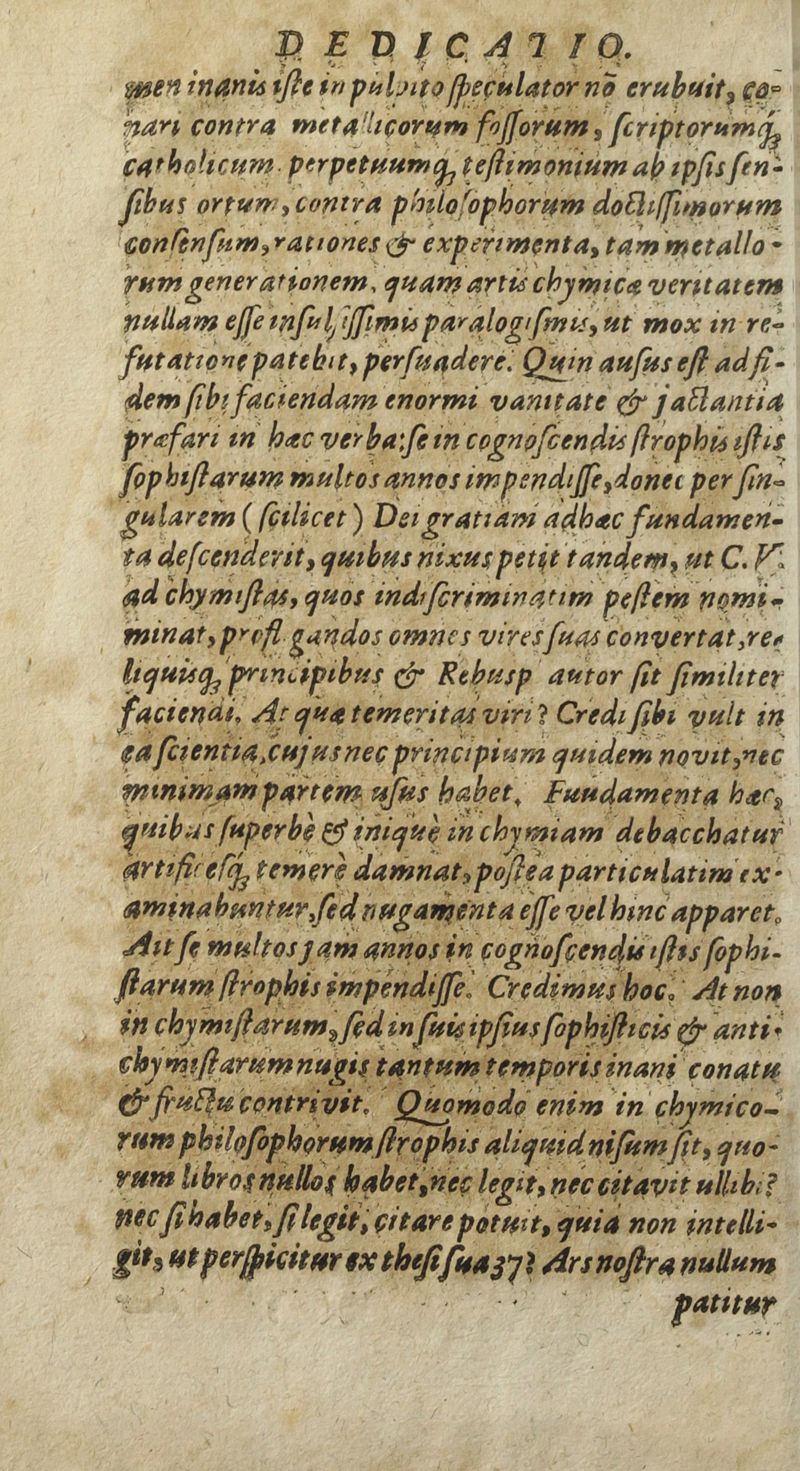 DEDICATIO.
men inanis iste in pulpito speculator nō erubuit, co-
nari contra metallicorum fossorum, scriptorumq;
catholicum perpetuumq; testimonium ab ipsis sen-
sibus ortum, contra philosophorum doctissimorum
consensum, rationes & experimenta, tam metallo-
rum generationem, quam artis chymicæ veritatem
nullam esse insulsissimis paralogismis, ut mox in re-
futatione patebit, persuadere. Quin ausus est ad fi-
dem sibi faciendam enormi vanitate & jactantia
præfari in hæc verba: se in cognoscendis strophis istis
sophistarum multos annos impendisse, donec per sin-
gularem (scilicet) Dei gratiam ad hæc fundamen-
ta descenderit, quibus nixus petit tandem, ut C. V.
ad chymistas, quos indiscriminatim pestem nomi-
minat, profligandos omnes vires suas convertat, re-
liquisq; principibus & Rebusp autor sit similiter
faciendi. At quæ temeritas viri? Credi sibi vult in
ea scientia, cujus nec principium quidem novit, nec
minimam partem usus habet. Fuudamenta hæc,
quibus superbè & iniquè in chymiam debacchatur
artificesq; temerè damnat, postea particulatim ex-
aminabuntur, sed nugamenta esse vel hinc apparet.
Ait se multos jam annos in cognoscendis istis sophi-
starum strophis impendisse. Credimus hoc. At non
in chymistarum, sed in suis ipsius sophisticis & anti-
chymistarum nugis tantum temporis inani conatu
& fructu contrivit. Quomodo enim in chymico-
rum philosophorum strophis aliquid nisum sit, quo-
rum libros nullos habet, nec legit, nec citavit ullibi?
nec si habet, si legit, citare potuit, quia non intelli-
git, ut perspicitur ex thesi sua 37? Ars nostra nullum
patitur